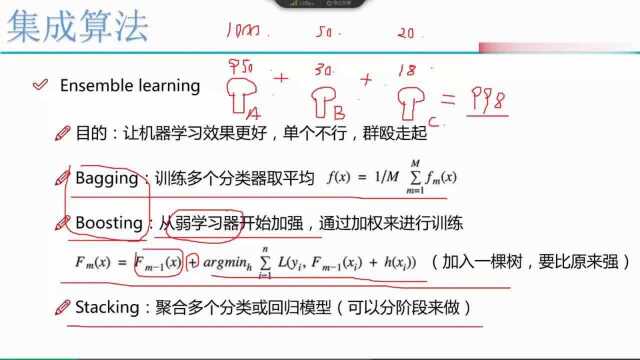 集成算法
1000 50 20
Ensemble learning
950 + 30 + 18 = 998
A B C
目的：让机器学习效果更好，单个不行，群殴走起
Bagging：训练多个分类器取平均 f(x) = 1/M ∑_{m=1}^{M} f_m(x)
Boosting：从弱学习器开始加强，通过加权来进行训练
F_m(x) = F_{m-1}(x) + argmin_h ∑_{i=1}^{n} L(y_i, F_{m-1}(x_i) + h(x_i))（加入一棵树，要比原来强）
Stacking：聚合多个分类或回归模型（可以分阶段来做）